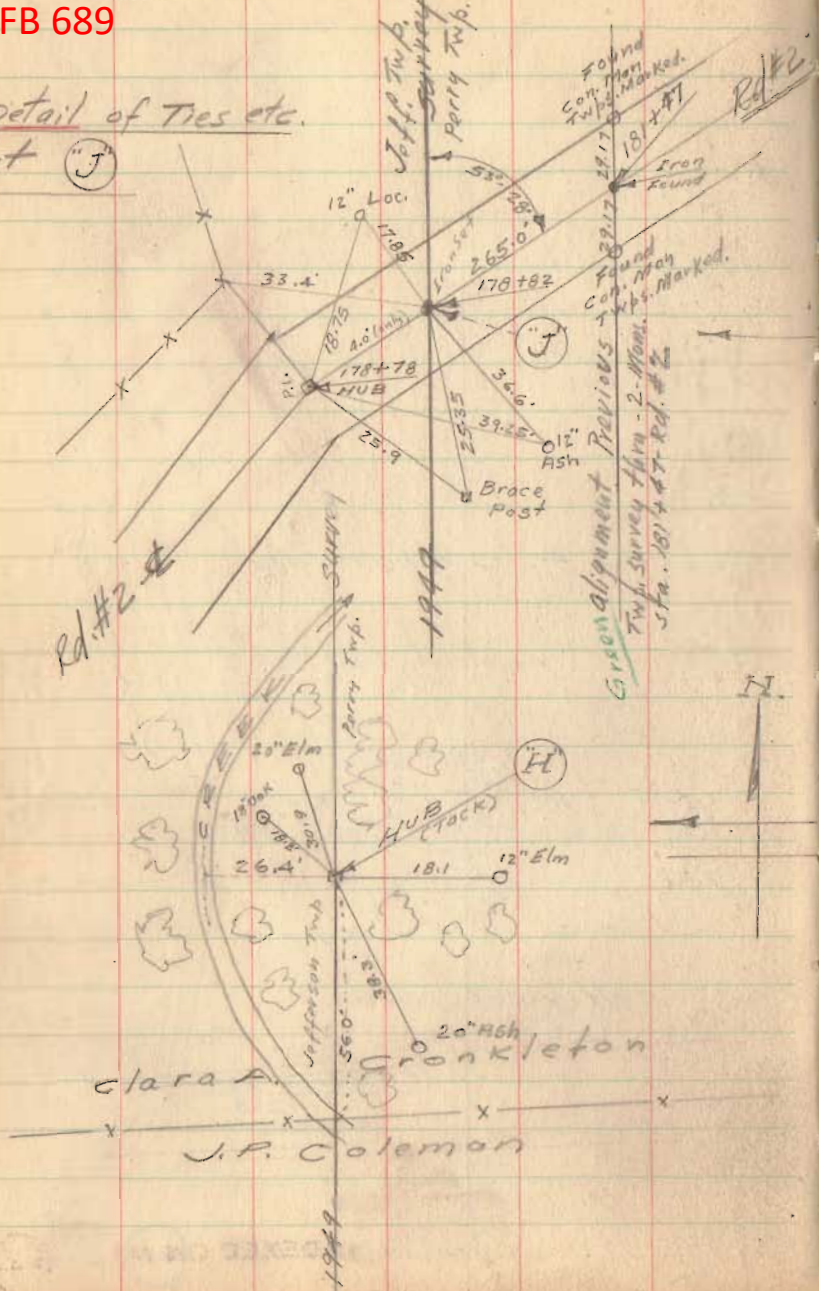 FB 689
Detail of Ties etc.
"J"
Joff. Twp.
Survey
Perry Twp.
Found
Con. Mon
Twps. Marked.
Rd #2
181+47
29.17
29.17
Iron
Found
Found
Con. Mon
Twps. Marked.
53°-28'
12" Loc.
17.85
Iron Set
265.0'
178+82
33.4'
18.75
4.0' (only)
"J"
P.I.
178+78
HUB
36.6'
39.25'
12"
Ash
25.9
25.35
Brace
Post
Rd. #2 ℄
1949
Green alignment Previous
Twp. Survey thru -2- Mons.
Sta. 181+47- Rd. #2
SURVEY
Perry Twp.
CREEK
N.
20" Elm
"H"
18" Oak
30.9
18.8'
HUB
(TACK)
26.4'
18.1
12" Elm
Jefferson Twp
56.0'
38.3'
20" Ash
Clara A. Cronkleton
J.P. Coleman
1949